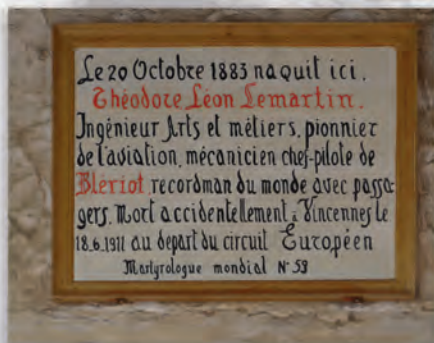 Le 20 Octobre 1883 naquit ici,
Théodore Léon Lemartin.
Ingénieur Arts et métiers, pionnier
de l'aviation, mécanicien chef-pilote de
Blériot recordman du monde avec passa-
gers. Mort accidentellement à Vincennes le
18.6.1911 au depart du circuit Européen
Martyrologue mondial N° 59